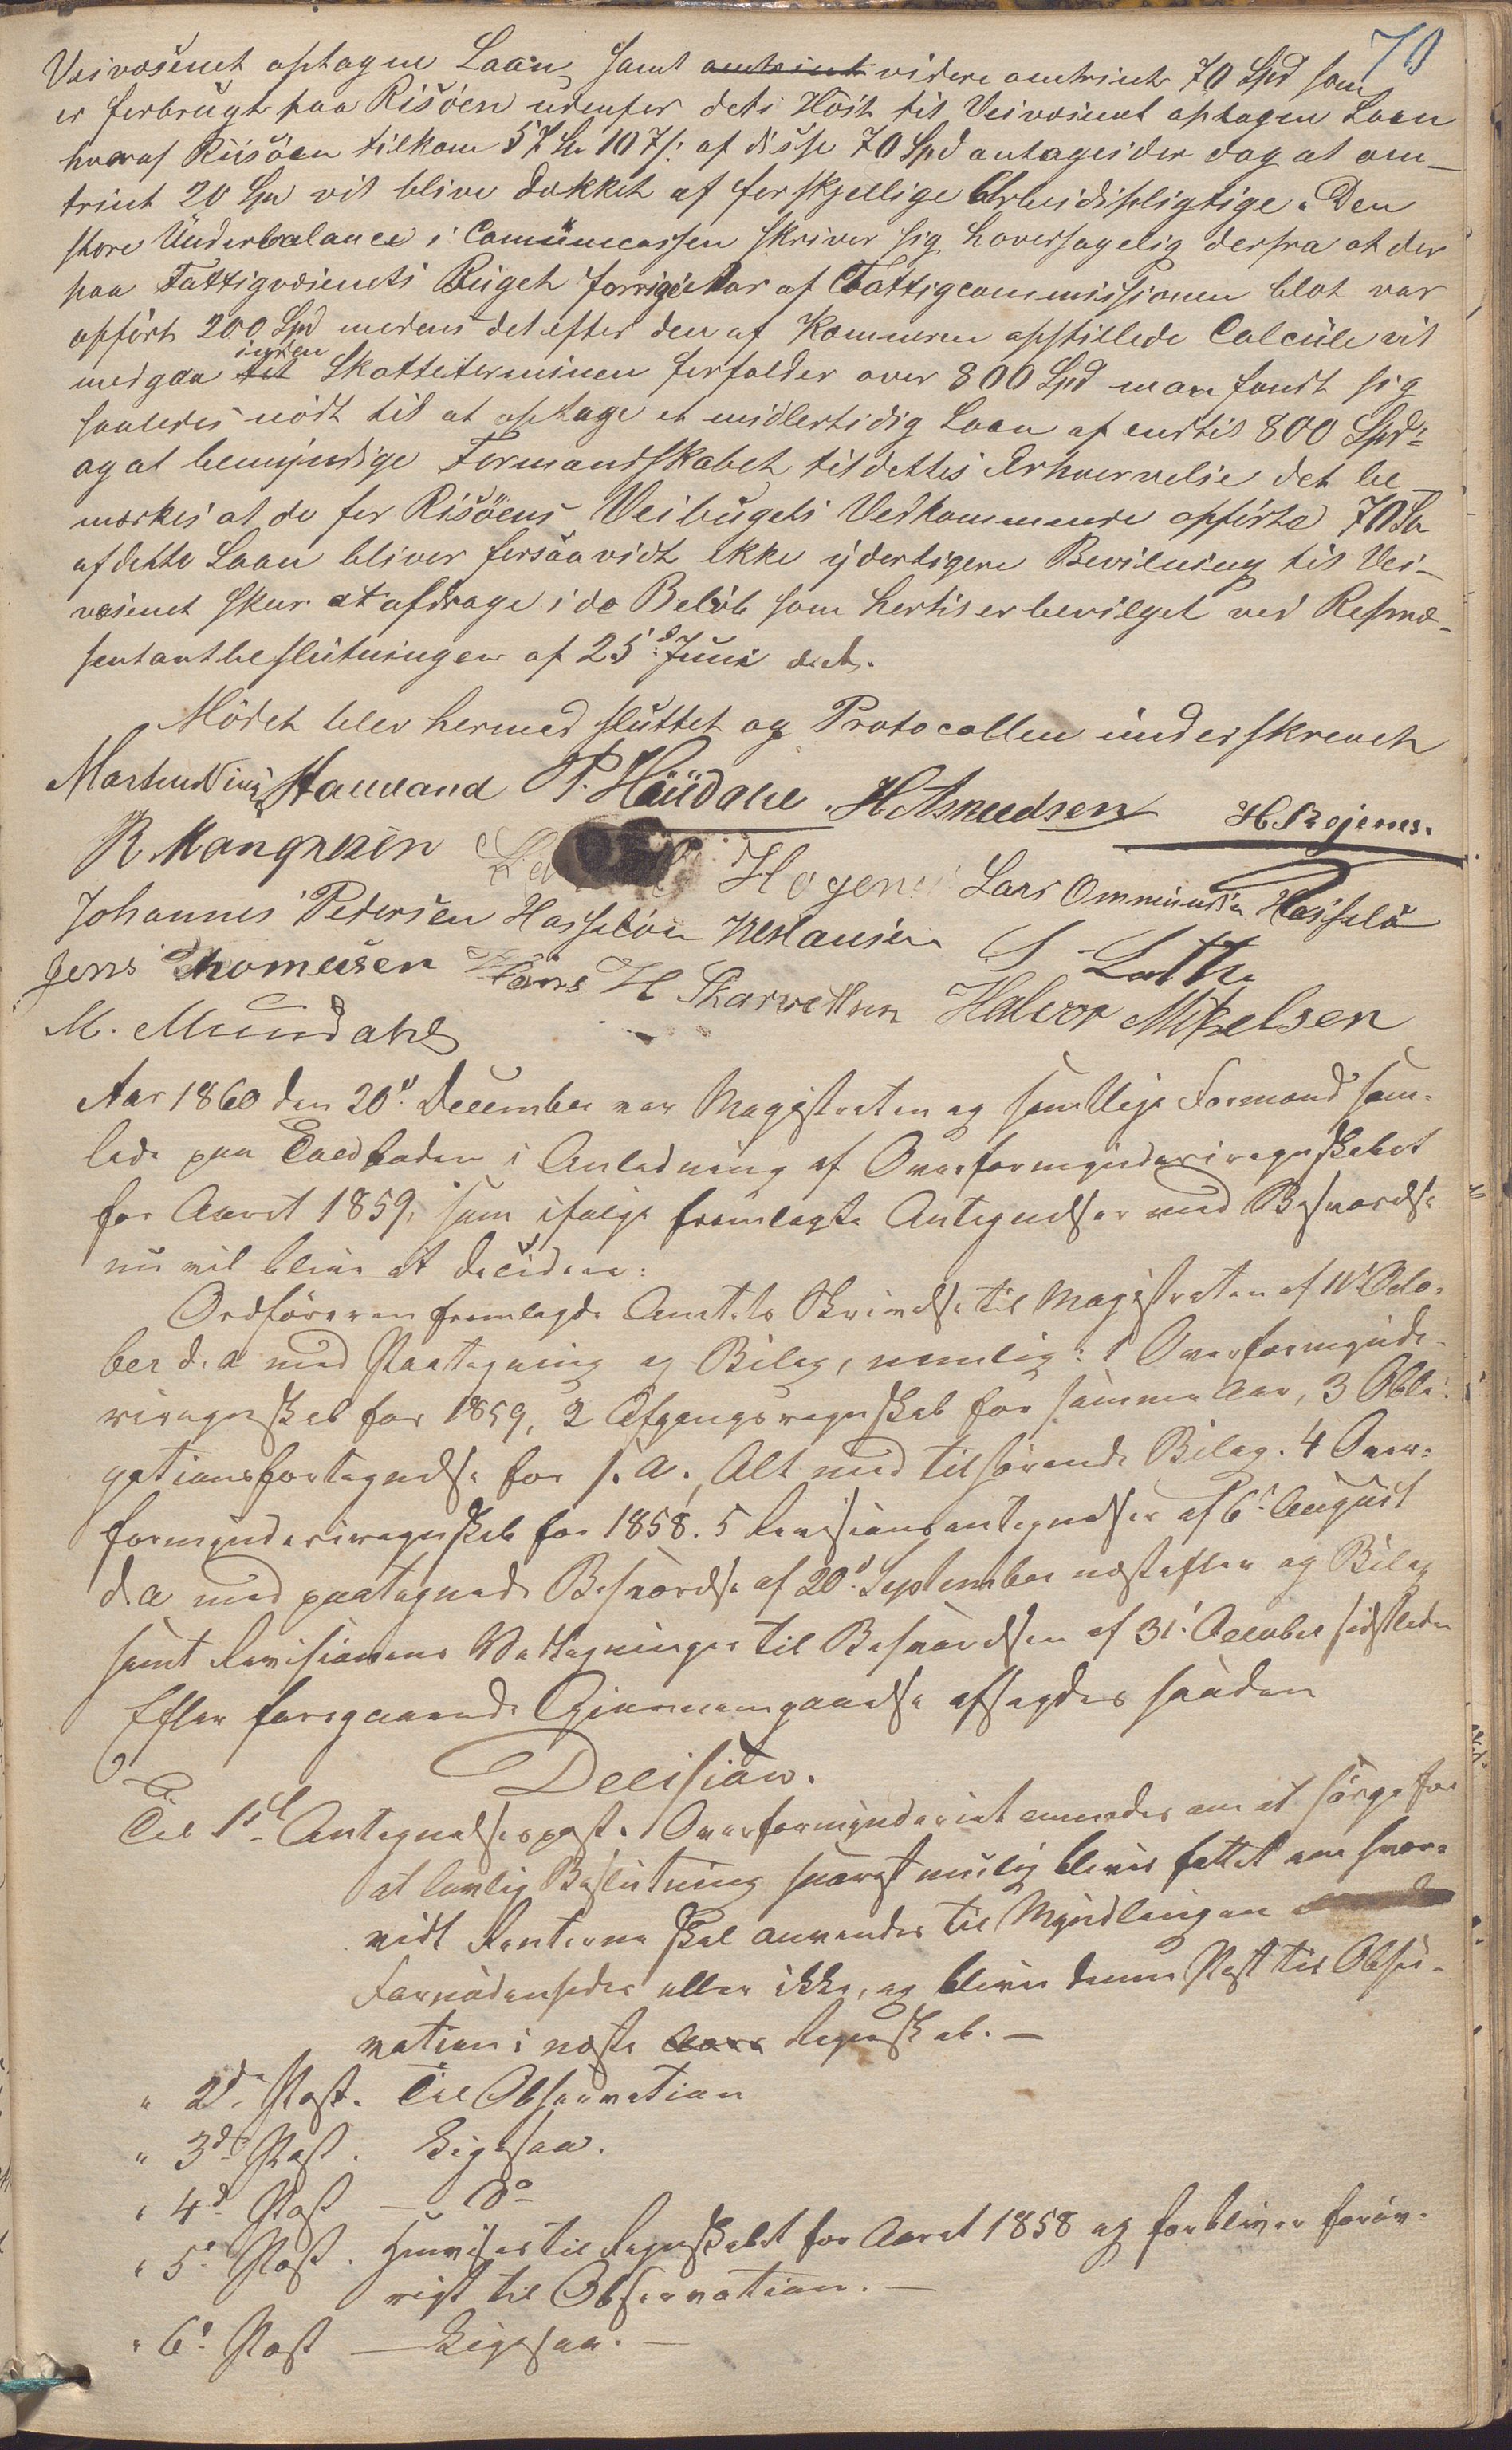 70
Veivæsenet optagne Laan, samt omtrint videre omtrint 70 Spd som
er forbrugt paa Risöen udenfor dets Höst til Veivæsenet optagen Laan
hvoraf Riisöen tilkom 57 Sp 107 s: af disse 70 Spd antages der dog at om-
trint 20 Spd vil blive dækket af forskjellige Arbeidspligtige. Den
store Underbalance i Comünecassen skriver sig hoversagelig derfra at der
paa Fattigvæsenets Büget forrige Aar af Fattigcommissionen blot var
opfört 200 Spd medens det efter den af Kæmneren opstillede Calcüle vil
medgaa til inden Skatteterminen forfalder over 800 Spd man fandt sig
saaledes nödt til at optage et midlertidig Laan af indtil 800 Spd:
og at bemyndige Formandskabet til dettes Erhvervelse det be-
mærkes at de for Risöens Veibugets Vedkommende opförte 70 Sp
af dette Laan bliver forsaavidt ikke yderligere Bevilning til Vei-
væsenet skur at afdrage i de Belöb som hertil er bevilget ved Repræ-
sentantbeslutningen af 25d: Juni d. A.
Mödet blev hermed sluttet og Protocollen underskrevet
Hauland P. Haüdahl H Asmeedsen H. Bojenes.
R. Mangnesen Hogene Lars Ommundsen Hasselö
Johannes Pedersen Hasselöen Hansen S. Loth
Jens Thomesen Hans H Skarvetten Halvor Mikelsen
M. Mundahl
Aar 1860 den 20d: December var Magistraten og samtlige Formænd sam-
lede paa Toldboden i Anledning af Overformynderiregnskabet
for Aaret 1859, som ifølge fremlagte Antegnelser med Besvarelse
nu vil blive at decidere:
Ordføreren fremlagde Amtets Skrivelse til Magistraten af Octo-
ber d. A med Paategning og Bilag, nemlig: 1 Overformynde-
riregnskab for 1859, 2 Afgangsregnskab for samme Aar, 3 Obli-
gationsfortegnelse for s. A., Alt med tilhörende Bilag. 4 Over-
formynderiregnskab for 1858. 5 Revisionsantegnelser af 6te August
d. A med paategnede Besvarelse af 20d: September næstefter og Bilag
samt Revisionens Paategninger til Besvarelsen af 31: October sidstleden
Efter foregaaende Gjennemgaaelse afsagdes saadan
Decision.
Til 1ste Antegnelsespost. Overformynderiet anmodes om at sørge for
at lovlig Beslutning snarest mulig bliver fattet om hvor-
vidt Renterne skal anvendes til Myndlingen
Fornödenheder eller ikke, og bliver denne Post til Obser-
vation i næste Aars Regnskab. —
" 2den Post. Til Observation
" 3die Post. Ligesaa.
" 4de Post — Do
" 5te Post. Henvises til Regnskabet for Aaret 1858 og forbliver forøv-
rigt til Observation. —
" 6te Post — Ligesaa. —